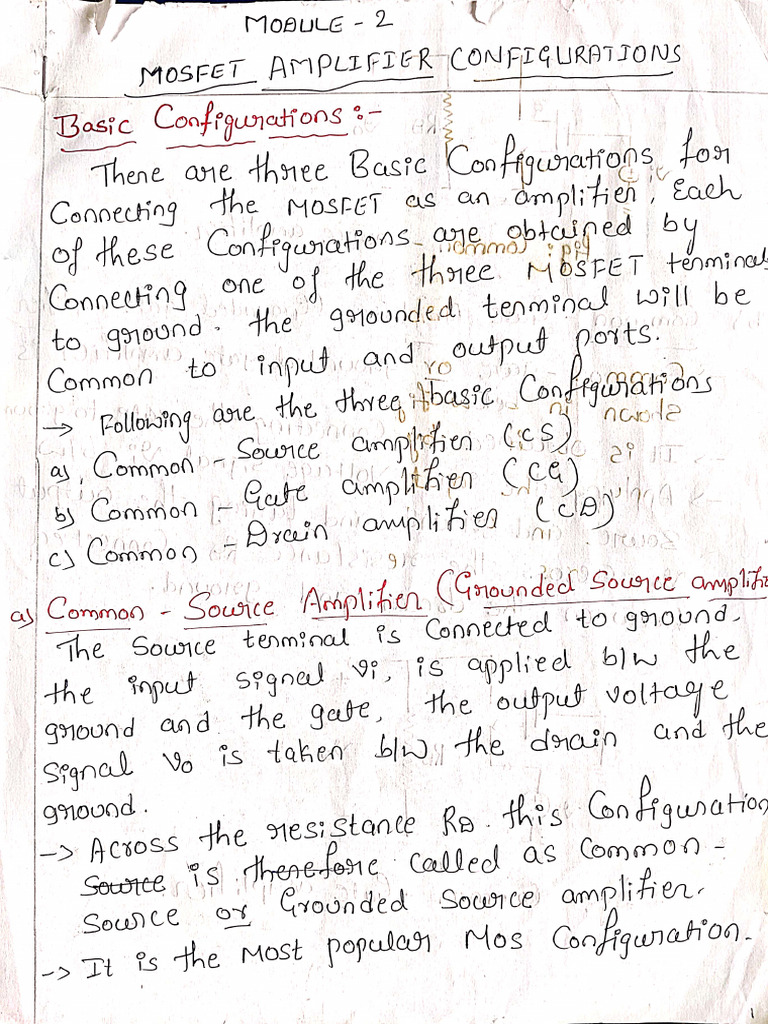 MODULE - 2
MOSFET AMPLIFIER CONFIGURATIONS
Basic Configurations :-
There are three Basic Configurations for
Connecting the MOSFET as an amplifier. Each
of these Configurations are obtained by
Connecting one of the three MOSFET terminals
to ground. the grounded terminal will be
Common to input and output ports.
→ Following are the three basic Configurations
a) Common - Source amplifier (CS)
b) Common - Gate amplifier (CG)
c) Common - Drain amplifier (CD)
a) Common - Source Amplifier (Grounded Source amplifie
The Source terminal is Connected to ground.
the input signal Vi, is applied b/w the
ground and the gate, the output voltage
signal Vo is taken b/w the drain and the
ground.
-> Across the resistance RD. this Configuration
Source is therefore called as common -
Source or Grounded Source amplifier.
-> It is the Most popular Mos Configuration.
1